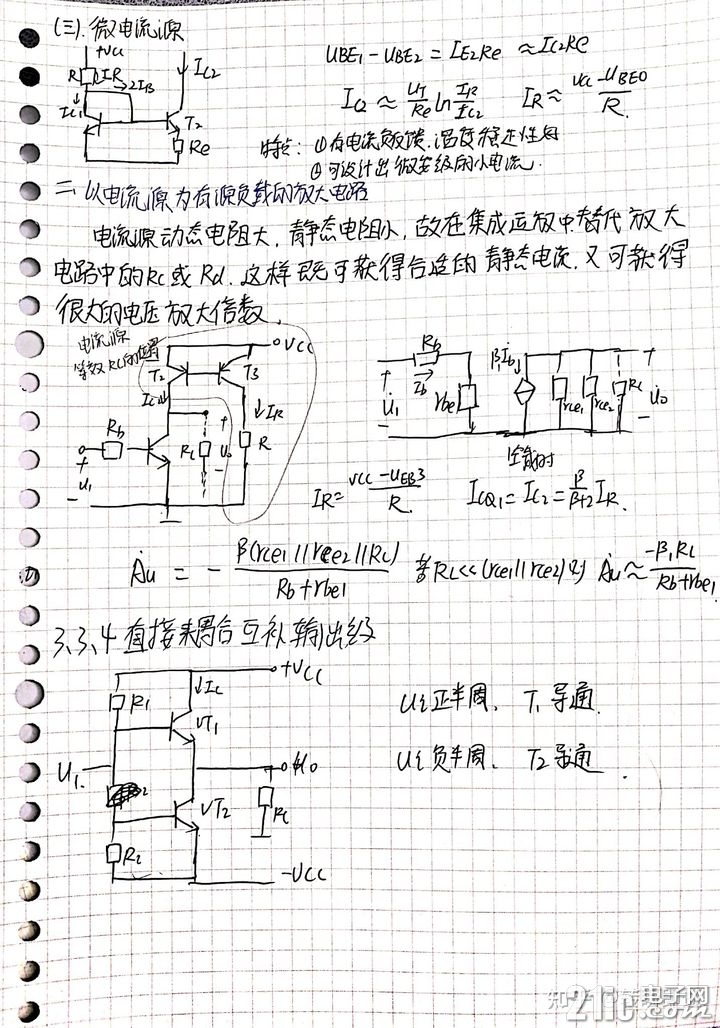 (三).微电流源
+VCC
R IR 2IB
IC1
IC2
T2
Re
UBE1-UBE2=IE2Re≈IC2Re
IC2≈UT/Re ln IR/IC2 IR≈VCC-UBE0/R.
特点:①有电流负反馈,温度稳定性好
②可设计出微安级的小电流.
二、以电流源为有源负载的放大电路
电流源动态电阻大,静态电阻小,故在集成运放中替代放大
电路中的Rc或Rd.这样既可获得合适的静态电流,又可获得
很大的电压放大倍数.
电流源
等效RC的位置
VCC
T2 T3
IC2 IR
Rb RL Uo R
U1
Rb
Ib rbe β1Ib rce1 rce2 RL
U1 Uo
空载时
IR=VCC-UEB3/R. ICQ1=IC2=β/β+2 IR.
Au=-β(rce1//rce2//RL)/Rb+rbe1 若RL<<(rce1//rce2)则 Au≈-β1RL/Rb+rbe1
3.3.4 直接耦合互补输出级
+VCC
R1 IC
VT1
U1 Uo
VT2 RL
R2
-VCC
Ui正半周、T1导通.
Ui负半周、T2导通.
21ic电子网
.com